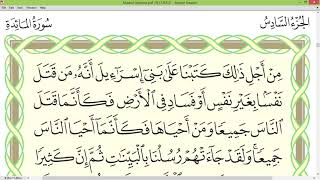 الجزء السادس
سورة المائدة
مِنْ أَجْلِ ذَٰلِكَ كَتَبْنَا عَلَىٰ بَنِي إِسْرَاءِيلَ أَنَّهُۥ مَن قَتَلَ
نَفْسًۢا بِغَيْرِ نَفْسٍ أَوْ فَسَادٍ فِي الْأَرْضِ فَكَأَنَّمَا قَتَلَ
النَّاسَ جَمِيعًا وَمَنْ أَحْيَاهَا فَكَأَنَّمَا أَحْيَا النَّاسَ
جَمِيعًا ۚ وَلَقَدْ جَاءَتْهُمْ رُسُلُنَا بِالْبَيِّنَاتِ ثُمَّ إِنَّ كَثِيرًا